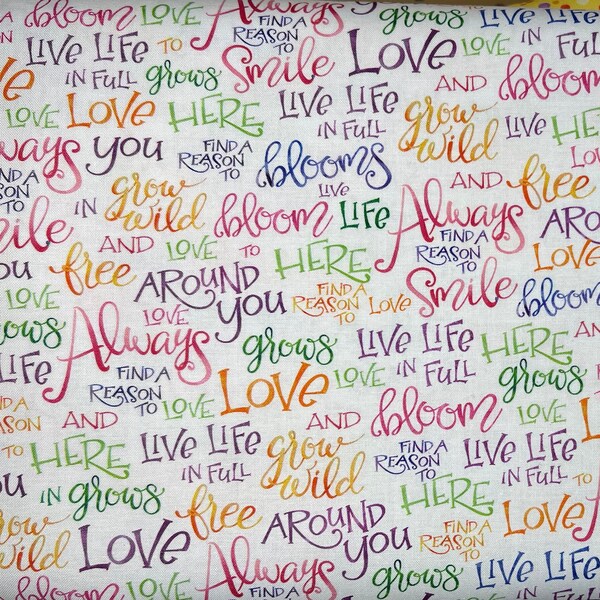 Always FIND A REASON TO grows LOVE IN
LIVE LIFE TO Smile LOVE LOVE IN FULL
IN FULL grows AND bloom
LOVE LOVE HERE LIVE LIFE IN FULL grow wild LIVE HERE
Always YOU FIND A REASON TO blooms LOVE
IN grow wild bloom LIVE LIFE AND free
Smile AND LOVE TO HERE Always FIND A REASON TO AROUND LOVE
YOU free AROUND YOU FIND A REASON TO LOVE Smile bloom
LOVE LOVE
grows Always grows LIVE LIFE IN FULL HERE
LIFE FIND A REASON TO LOVE LOVE LOVE grows
FIND A REASON AND AND bloom LOVE
TO HERE LIVE LIFE IN FULL grow wild FIND A REASON TO LIVE LIFE IN FULL TO
YOU IN grows free AROUND YOU HERE FIND A REASON TO LOVE
grow wild LOVE Always grows LIVE LIFE
bloom FIND A